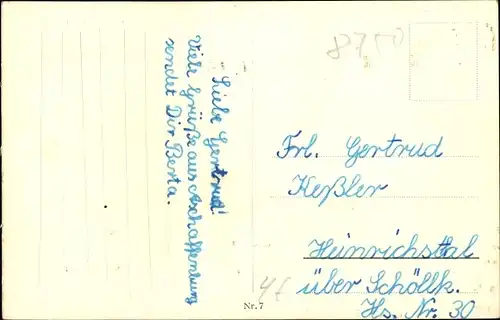 Liebe Gertrud!
Viele Grüße aus Aschaffenburg
sendet Dir Berta.
8750
Frl. Gertrud
Keßler
Heinrichstal
über Schöllk.
Hs. Nr. 30
Nr. 7